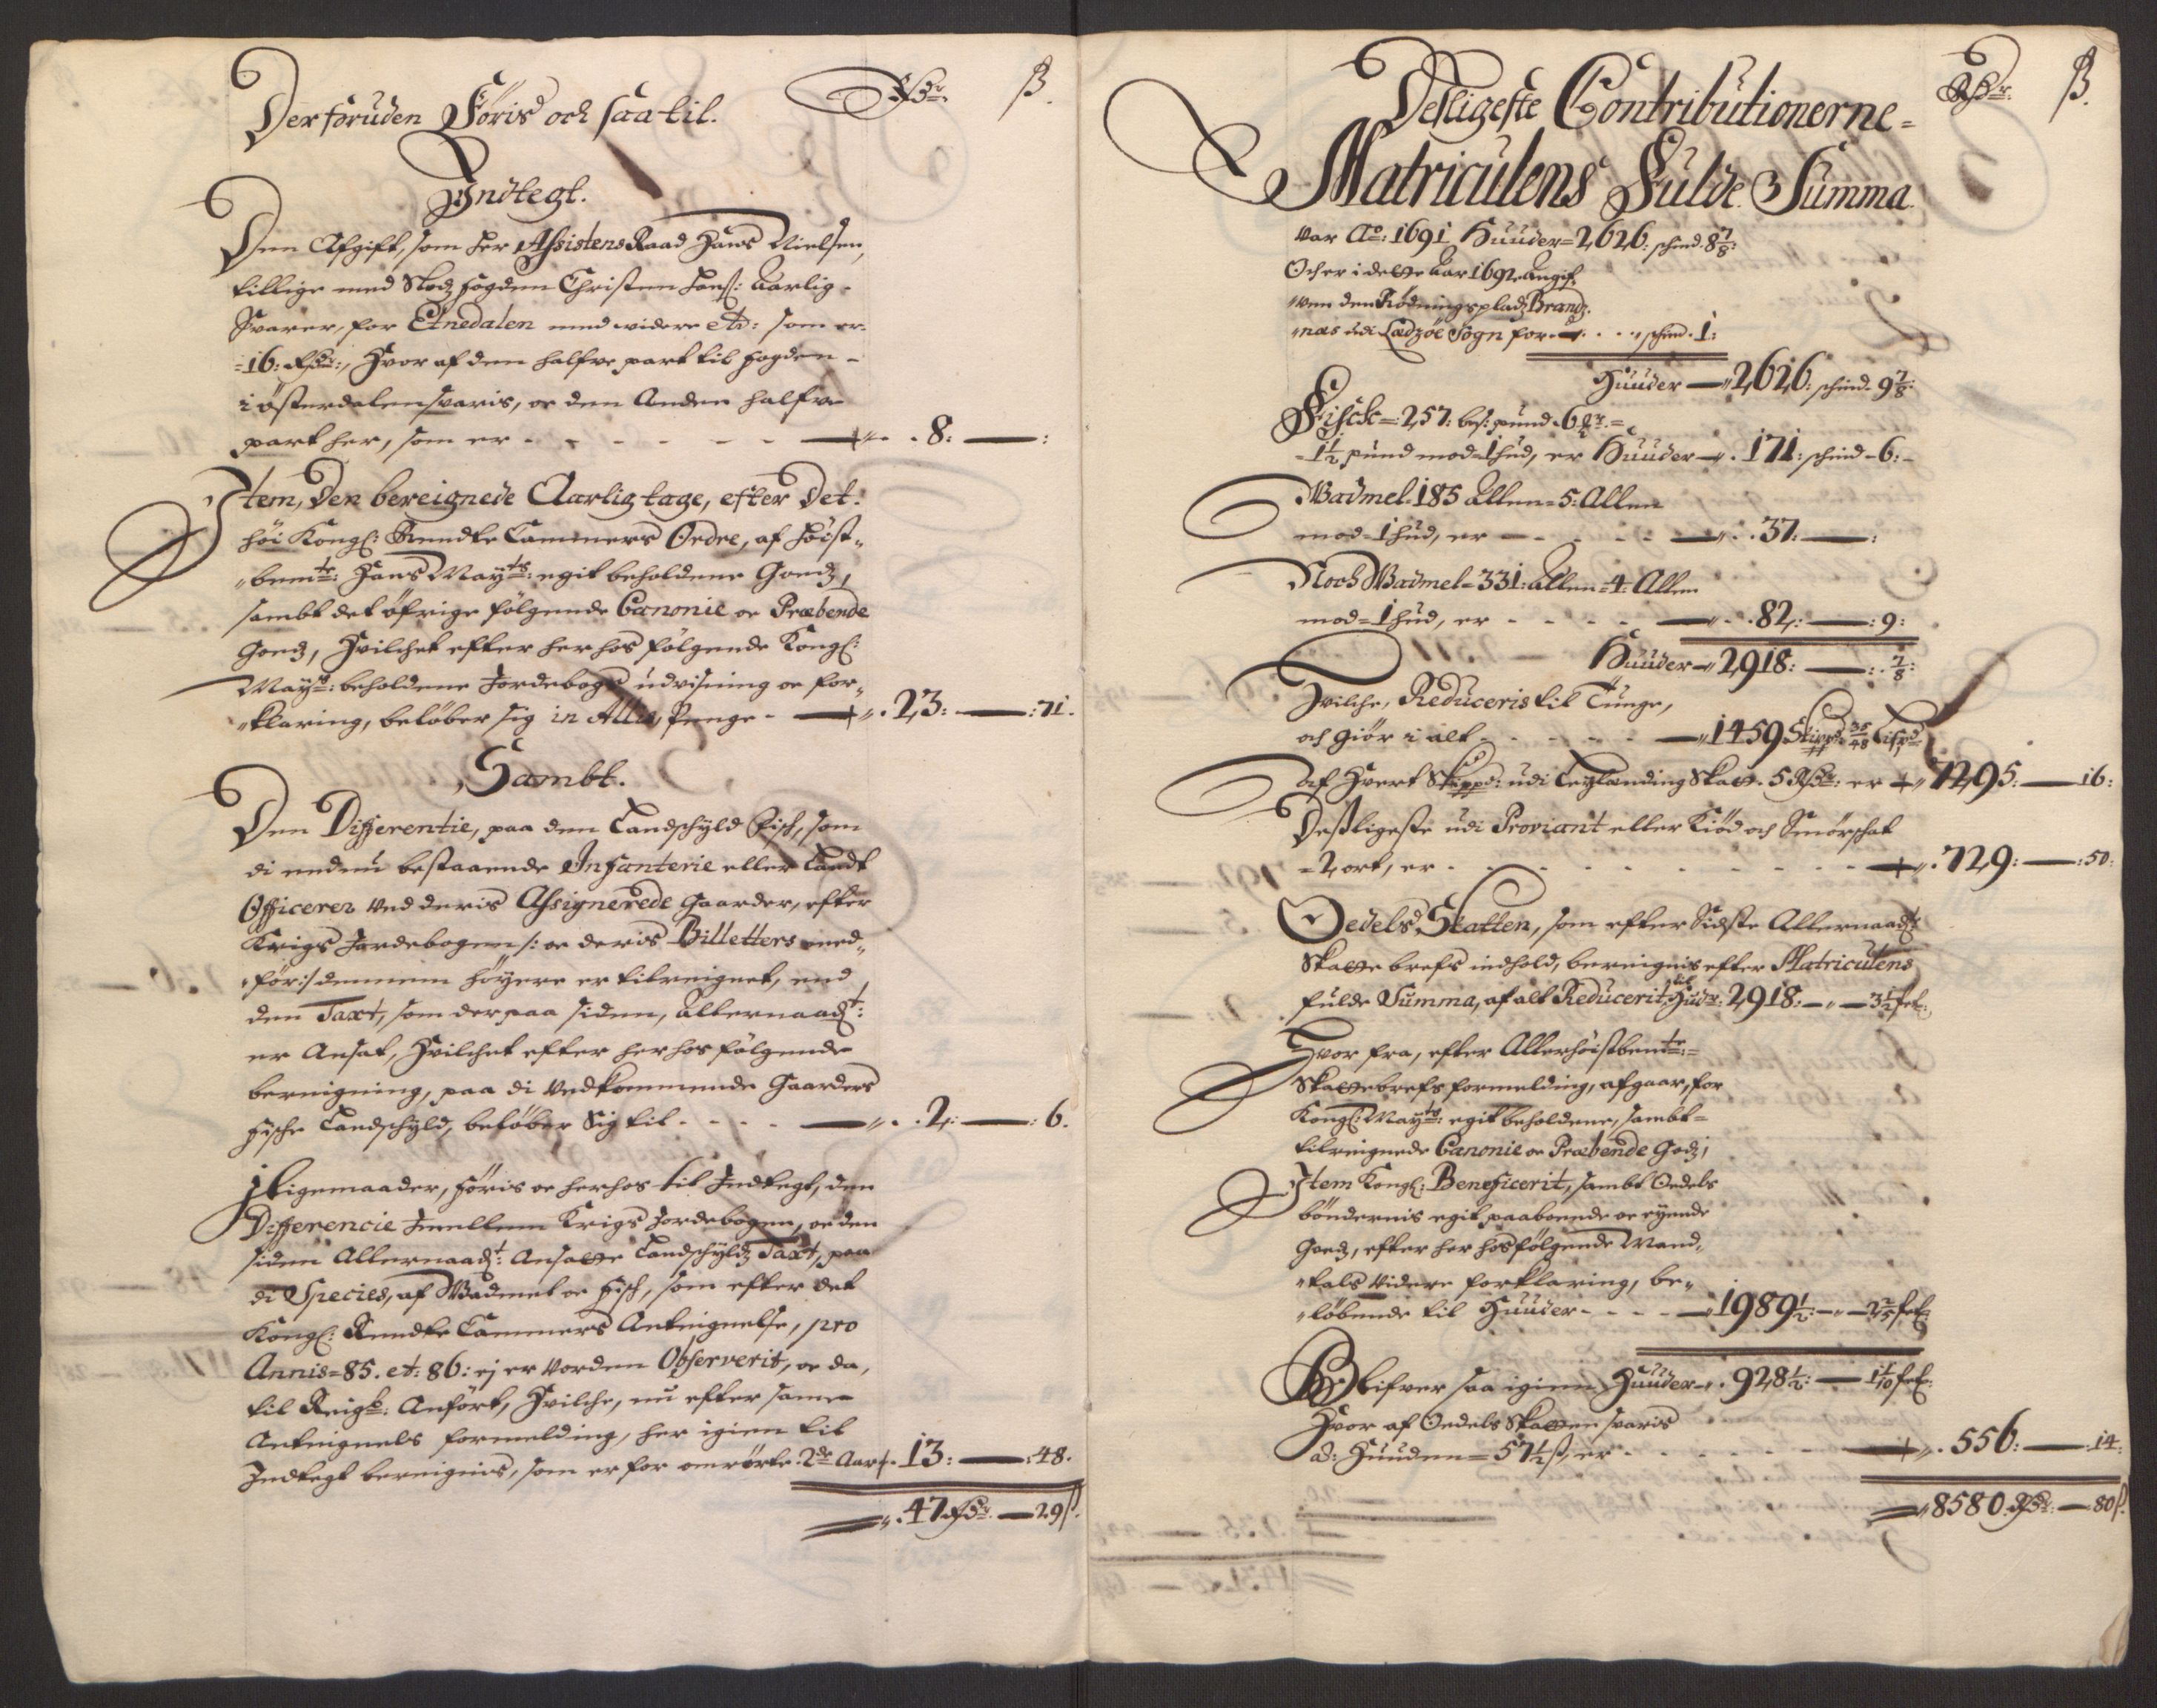 Derforuden Föris och saa til. Rdr. ß.
Indtegt.
Den Afgift, som her Assistens Raad Hans Nielsen,
tillige med fogden Christen aarlig
Svarer, for Etnedalen med widere etc: som er
16: Rdr:, Hvor af den halfve part til fogden
i österdalen svaris, oc den Anden halfve
part her, som er - - - 8: — :
Item, Den bereignede Aarlig tage, efter Det
höi Kongl: Rendte Cammers Ordre, af höist
bem.te: Hans May.ts: egit beholdene Goedz,
sambt det öfrige fölgende Canonie oc Præbende
Goedz, Hvilchet efter her hos fölgende Kongl:
May.ts: beholdene Jordebogs udvisning oc for
klaring, belöber sig in Allis, Penge - 23: — :71.
Sambt.
Den Differentie, paa den Landschyld Fisch, som
di endnu bestaaende Infanterie eller Landt
Officerer ved deris Assignerede Gaarder, efter
Krigs Jordebogen /: oc deris Billetters med
för:/ dennem höyere er tilreignet, end
den Taxt, som der paa siden, Allernaad.t:
er Ansat, Hvilchet efter her hos fölgende
bereigning, paa di vedkommende Gaarders
fische Landschyld, belöber Sig til - - - 2: — : 6.
J ligemaader, föris oc her hos til Indtegt, den
Differencie Jmellem Krigs Jordebogen, oc den
siden Allernaad.t: Ansatte Landschyldz Taxt, paa
di Species, af Wadmel oc fisch, som efter det
Kongl: Rendte Cammers Anteignelse, pro
Annis = 85. et: 86: ej er vorden Observerit, oc da,
til Reigk: Anfört, Hvilche, nu efter samme
Anteignels formelding, her igien til
Indtegt bereignis, som er for omrörte 2de Aar 13: — :48.
47 Rdr. — 29 ß.
Desligeste Contributionerne = Rdr. ß.
Matriculens Fulde Summa
Var Ao: 1691 Huuder = 2626: schind 8 7/8:
Och er i dette Aar 1692 angif
ven den Rödningspladz Brand
næs udi Sogn for - - schind. 1:
Huuder — 2626: schind. 9 7/8:
Fisch = 257: pund 6
1 1/2 pund mod 1 hud, er Huuder - . 171: schind - 6:
Wadmel 185 allen = 5: Allen
mod 1 hud, er - - - 37: — :
Noch Wadmel = 331: allen = 4: Allen
mod = 1 hud, er - - - 82: — : 9:
Huuder - 2918: — : 7/8:
Hvilche, Reduceris til Tunge,
och giör i alt - - - 1459 Skippd 35/48 Lispd.
af Hvert Skippd: udi Leylænding Skatt. 5 Rdr: er 7295: — 16:
Desligeste udi Proviant eller Kiöd och Smörschat
= 2 ort, er - - - 729: — :50:
Oedels Skatten, som efter Sidste Allernaad.t:
Skatte brefs indhold, bereignis efter Matriculens
fulde Summa, af alt Reducerit til Hudr: 2918: — 3 1/2 fel:
Hvor fra, efter Allerhöistbem.te:
Skattebrefs formelding, afgaar, for
Kongl: May.ts: egit beholdene, sambt
tilreignede Canonie oc Præbende Godz,
Item Kongl: Beneficerit, sambt Oedels
böndernis egit paaboende oc eyende
Goedz, efter her hos fölgende Mand,
tals videre forklaring, be,
löbende til Huuder - - - 1989 1/2: — 2 2/5 fel:
Blifver saa igien Huuder . 928 1/2: — 1 1/10 fel:
Hvor af Oedels Skatten svaris
ad: Huuden = 57 1/2 ß, er - - - 556: — 14:
8580 Rdr: — 80 ß.